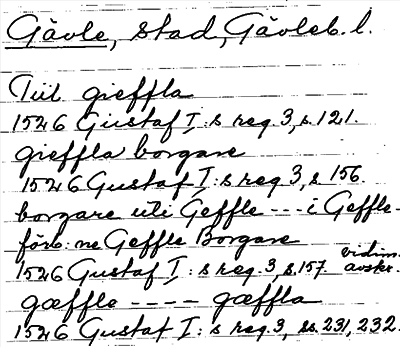 Gävle, stad, Gävleb. l.
Tiil gieffla
1526 Gustaf I:s reg. 3, s. 121.
gieffla borgare
1526 Gustaf I:s reg. 3, s 156.
borgare uti Geffle --- i Geffle-
förb:ne Geffle Borgare
1526 Gustaf I:s reg. 3, s. 157. vidim. avskr.
gæffle ---- gæffla
1526 Gustaf I:s reg. 3, ss. 231, 232.